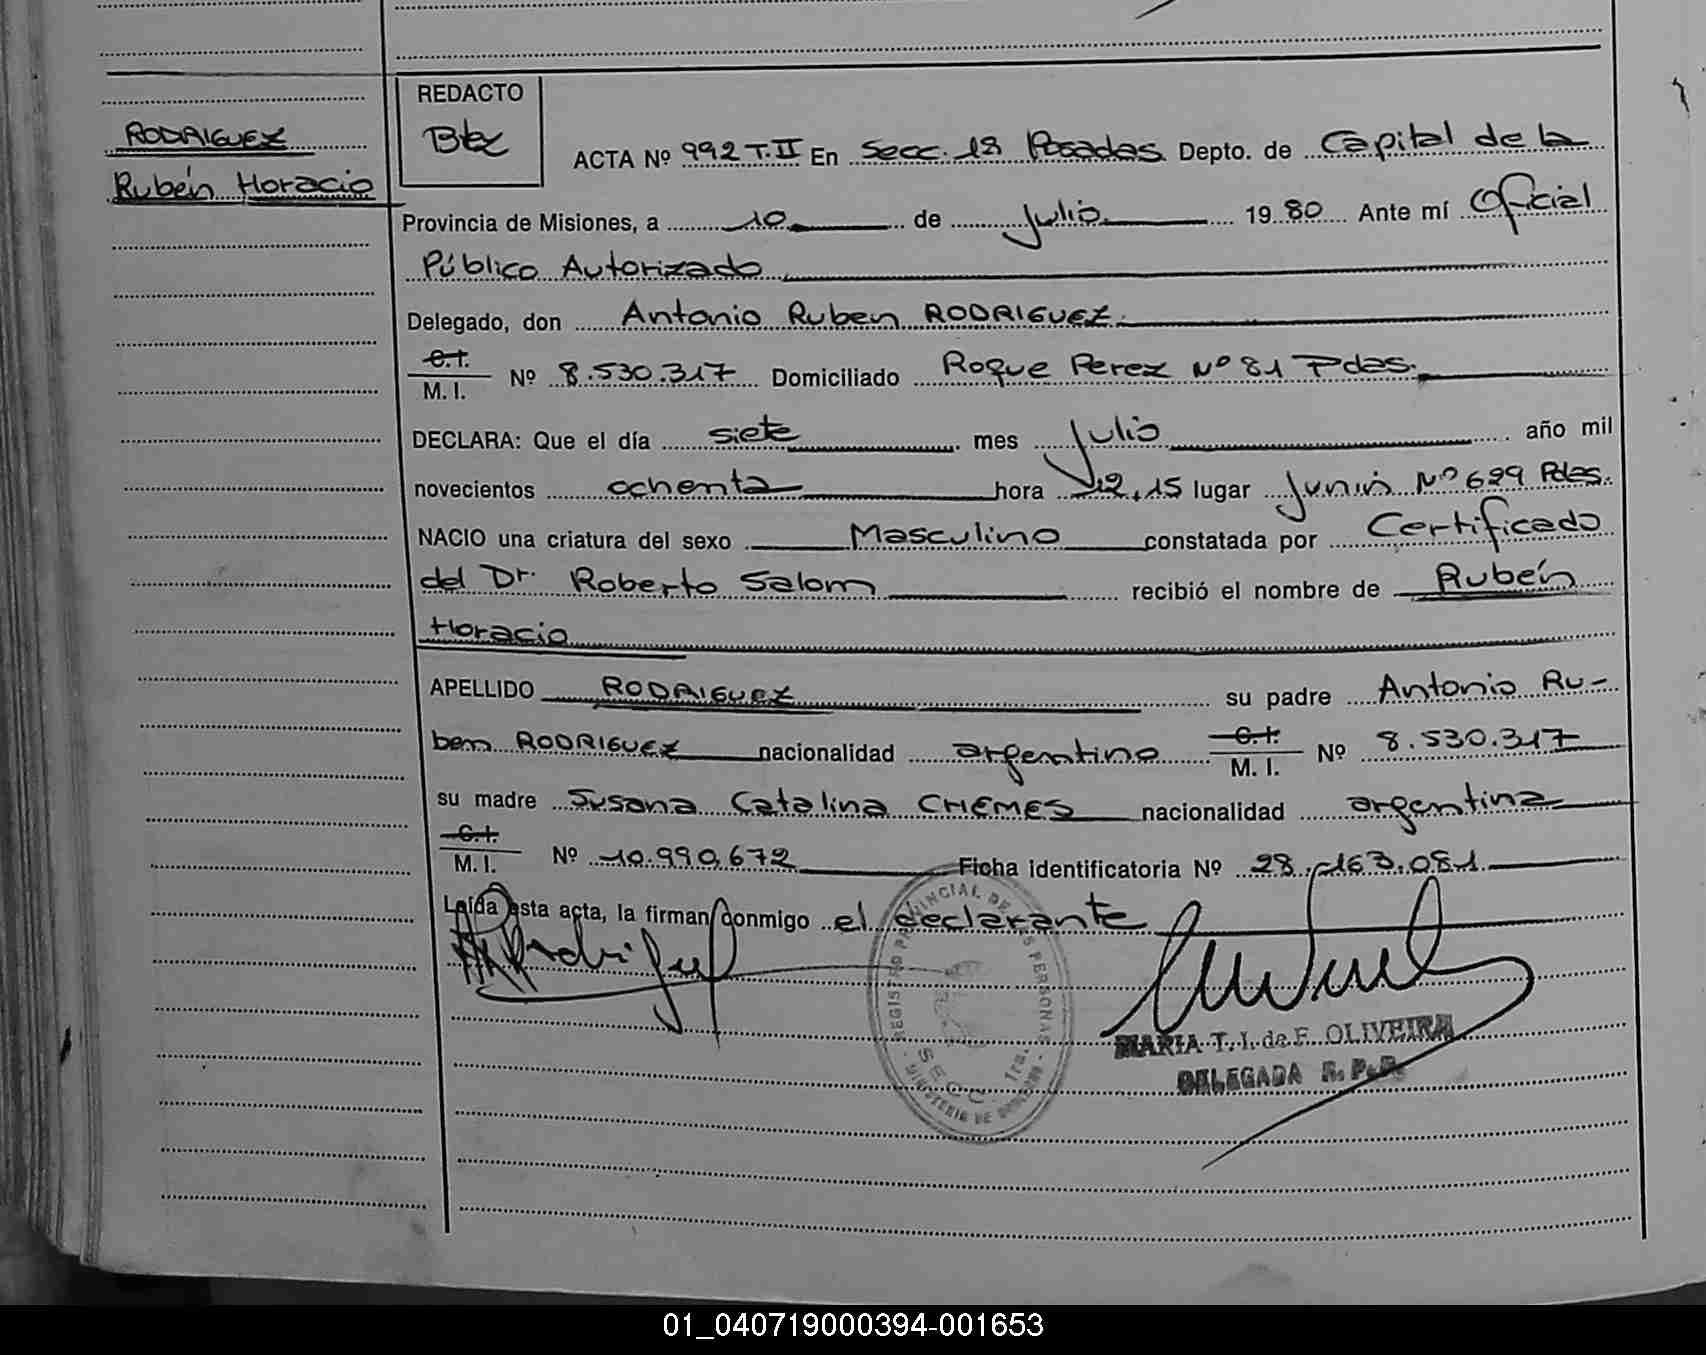 REDACTO
RODRIGUEZ
Rubén Horacio
ACTA Nº 992 T.II En Secc. 1ª Posadas Depto. de Capital de la
Provincia de Misiones, a 10 de Julio 1980 Ante mí Oficial
Público Autorizado
Delegado, don Antonio Ruben RODRIGUEZ
C.I.
M. I. Nº 8.530.317 Domiciliado Roque Perez Nº 81 Pdas.
DECLARA: Que el día siete mes Julio año mil
novecientos ochenta hora 12,15 lugar Junin Nº 699 Pdas.
NACIO una criatura del sexo Masculino constatada por Certificado
del Dr. Roberto Salom recibió el nombre de Rubén
Horacio
APELLIDO RODRIGUEZ su padre Antonio Ru-
ben RODRIGUEZ nacionalidad argentino C.I. M. I. Nº 8.530.317
su madre Susana Catalina CHEMES nacionalidad argentina
C.I.
M. I. Nº 10.990.672 Ficha identificatoria Nº 28.163.081.
Leída esta acta, la firman conmigo el declarante
REGISTRO PROVINCIAL DE LAS PERSONAS
SECC. 1ra.
MINISTERIO DE GOBIERNO
MARIA T. I. de F. OLIVEIRA
DELEGADA R. P. P.
01_040719000394-001653